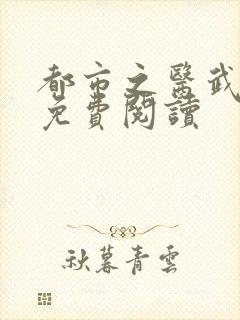 都市之醫武
免費閱讀
秋暮青雲